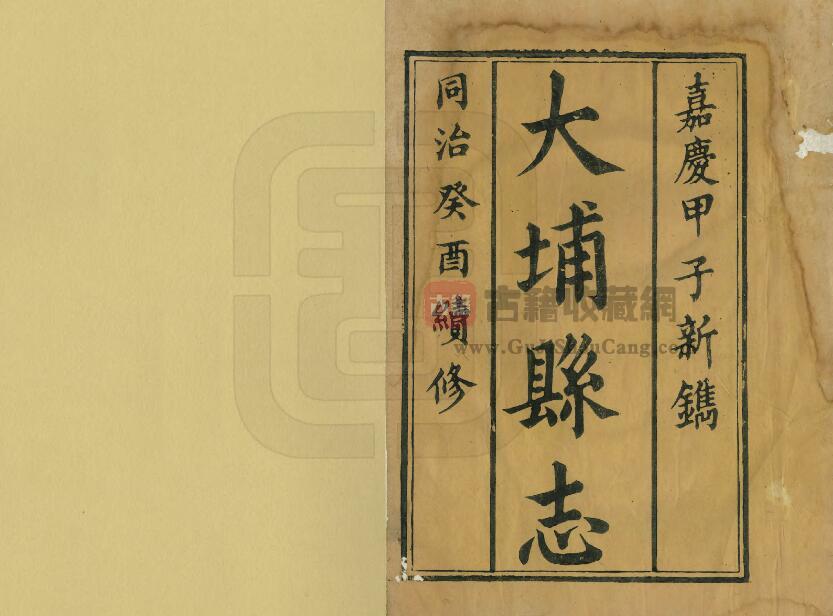 嘉慶甲子新鐫
大埔縣志
同治癸酉續修
古籍收藏網
www.GuJiShouCang.com